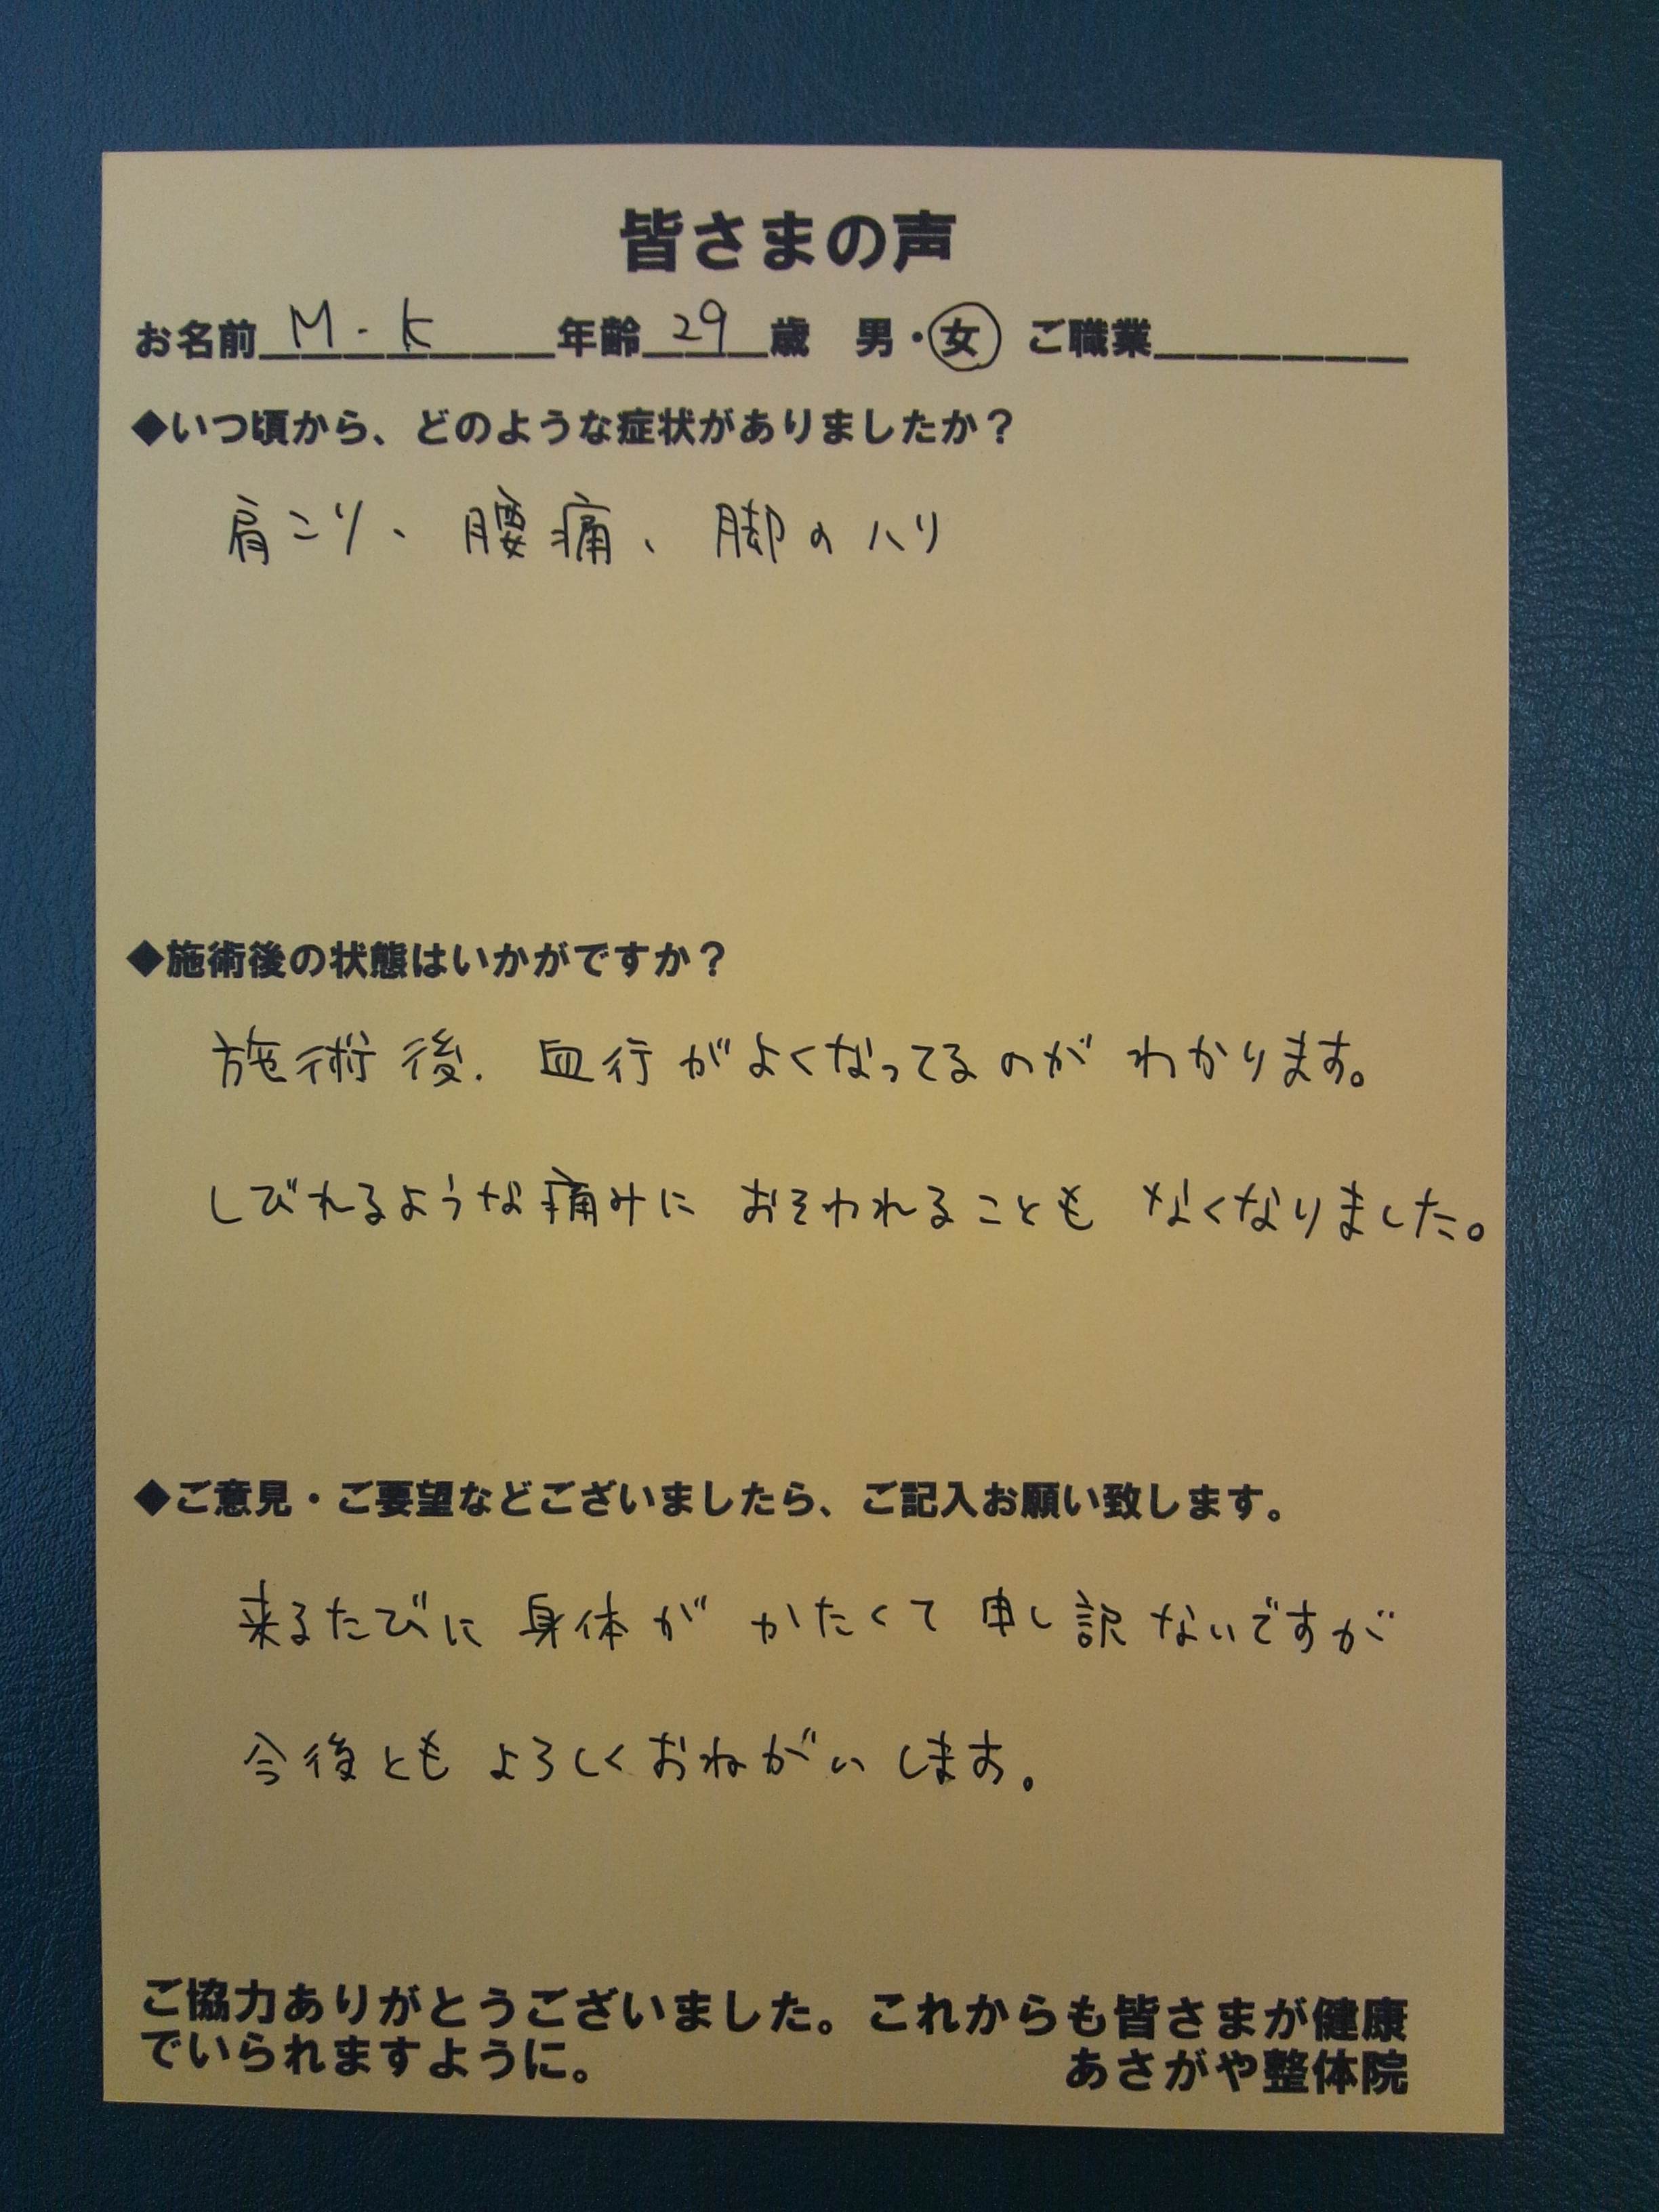 皆さまの声
お名前 M-K 年齢 29 歳 男・女 ご職業
◆いつ頃から、どのような症状がありましたか？
肩こり、腰痛、脚のハリ
◆施術後の状態はいかがですか？
施術後、血行がよくなってるのがわかります。
しびれるような痛みにおそわれることもなくなりました。
◆ご意見・ご要望などございましたら、ご記入お願い致します。
来るたびに身体がかたくて申し訳ないですが
今後ともよろしくおねがいします。
ご協力ありがとうございました。これからも皆さまが健康
でいられますように。 あさがや整体院